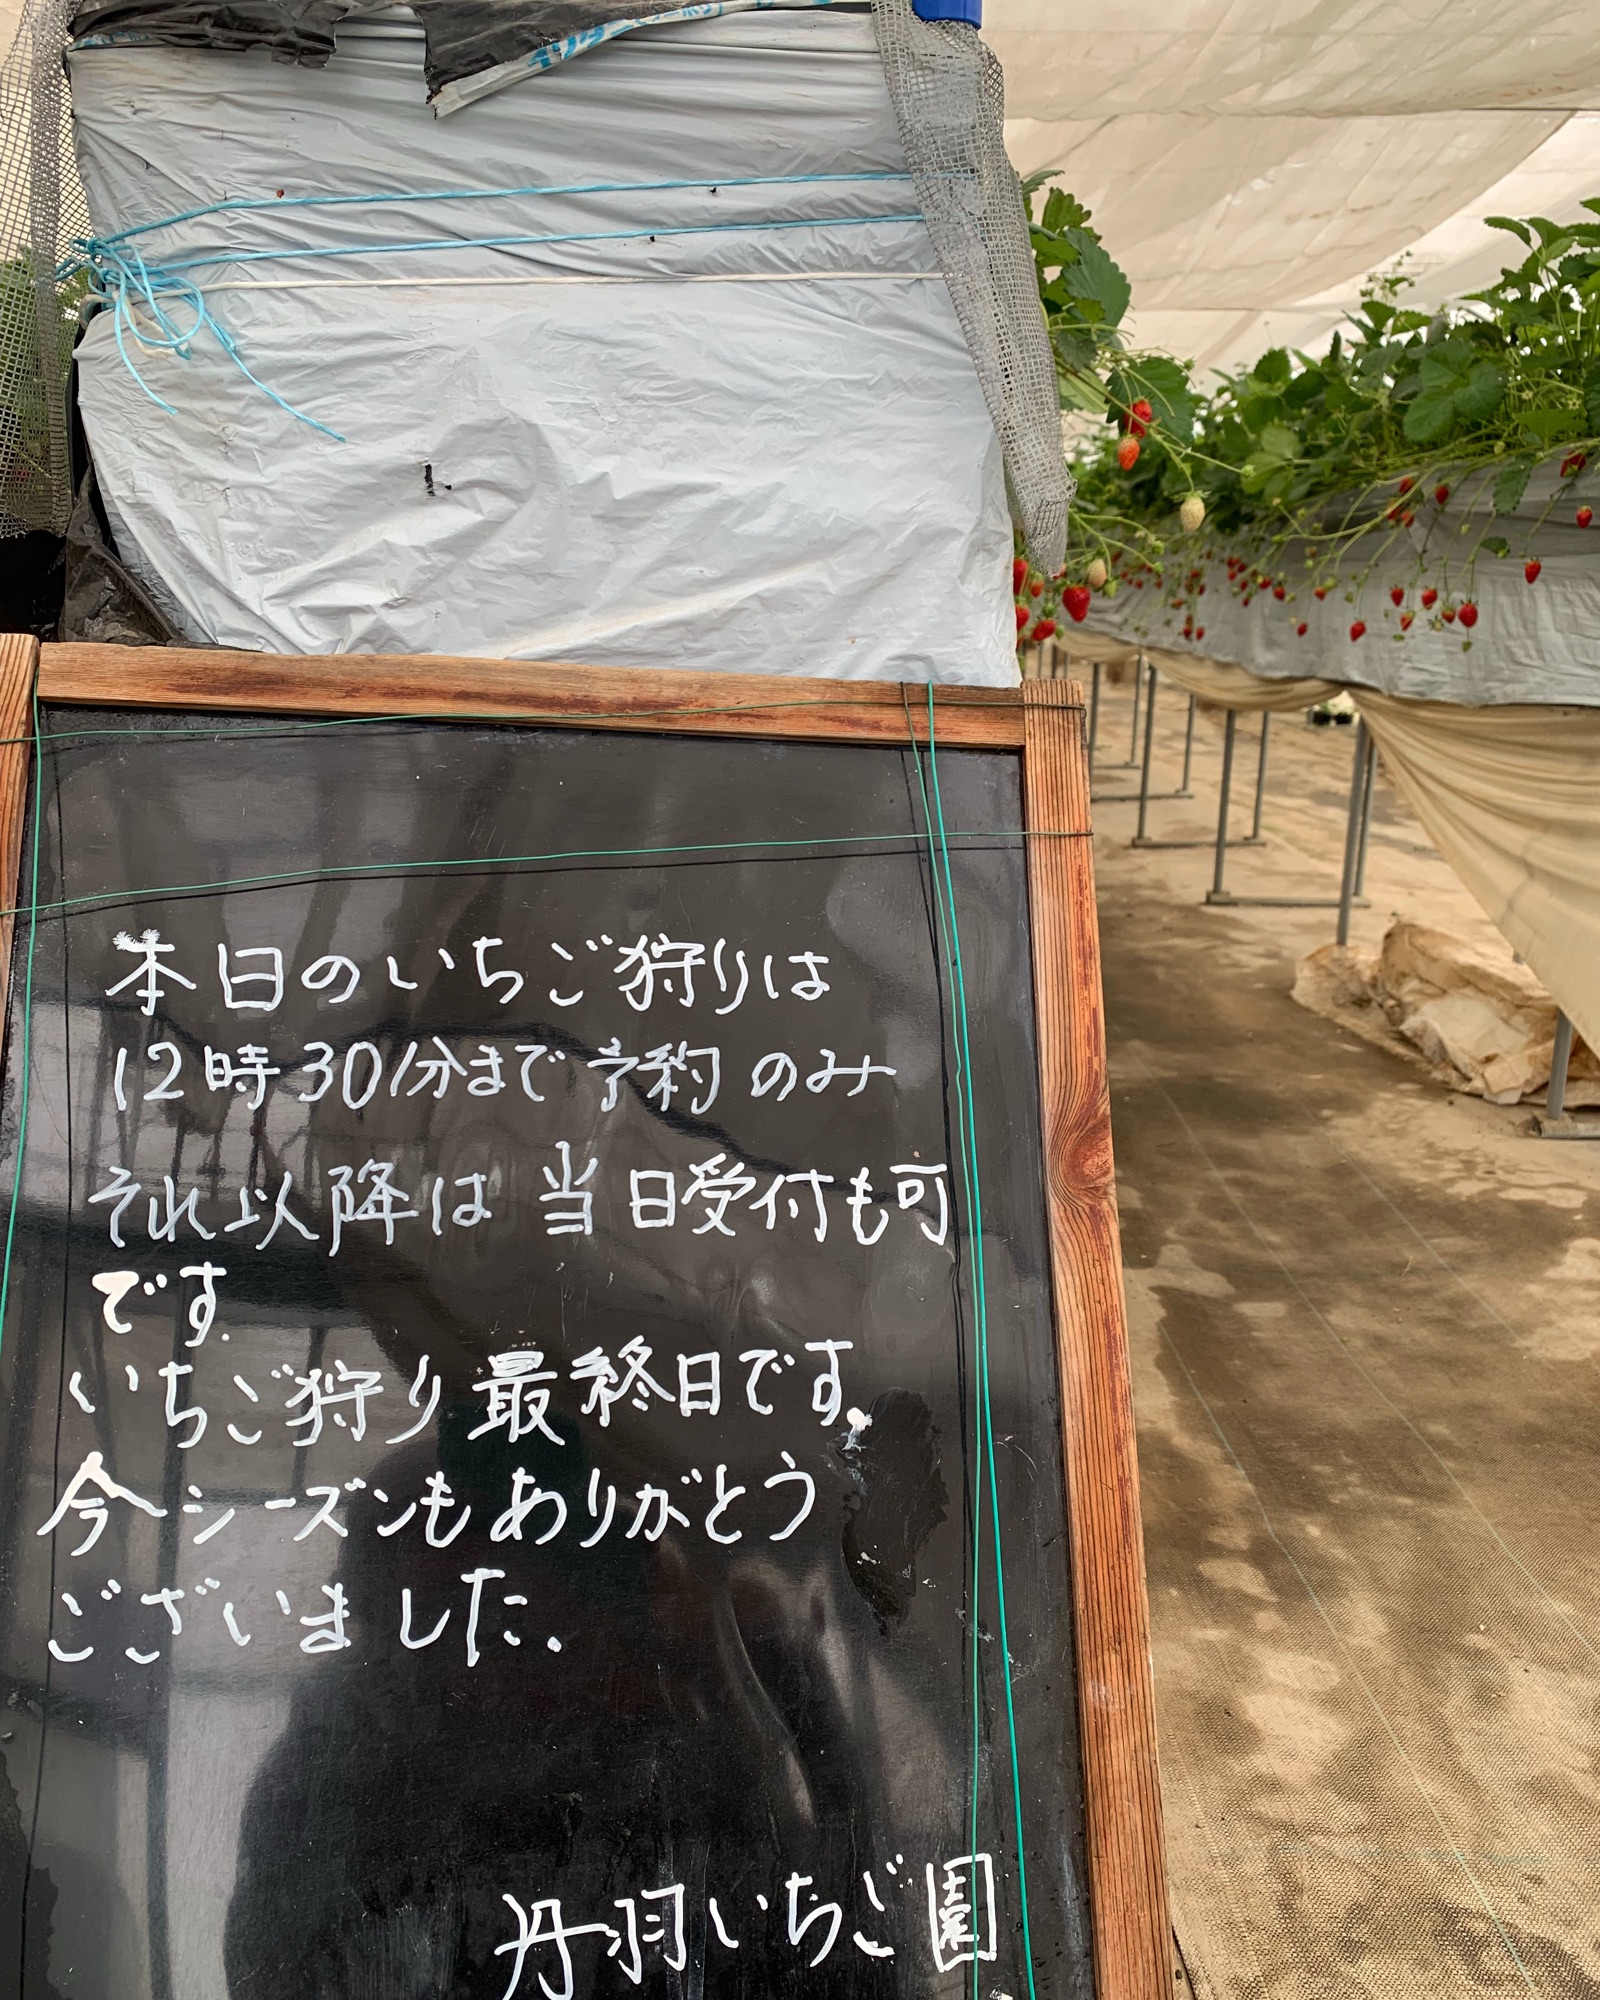 本日のいちご狩りは
12時30分まで予約のみ
それ以降は当日受付も可
です.
いちご狩り最終日です.
今シーズンもありがとう
ございました.
丹羽いちご園